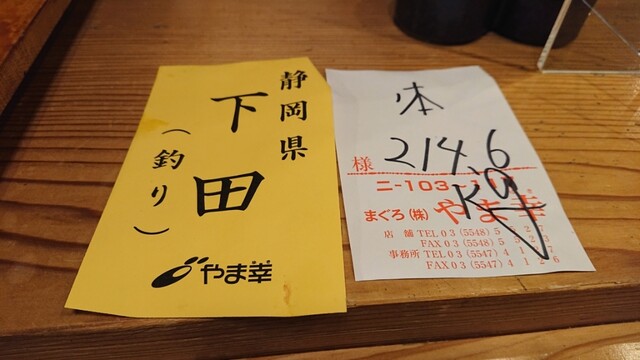 静岡県
下田
(釣り)
やま幸
本
214.6
Kg
様
ニ-103
まぐろ(株) やま幸
店舗 TEL 03 (5548) 5
FAX 03 (5548) 5
事務所 TEL 03 (5547) 4 1 2
FAX 03 (5547) 4 1 2 6